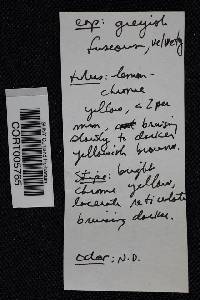 cap: greyish
fuscous, velvety
tubes: lemon-
chrome
yellow, < 2 per
mm, bruising
slowly to darker
yellowish brown.
Stipe: bright
chrome yellow,
lacerate reticulate
bruising darker.
odor: N.D.
CORT005765